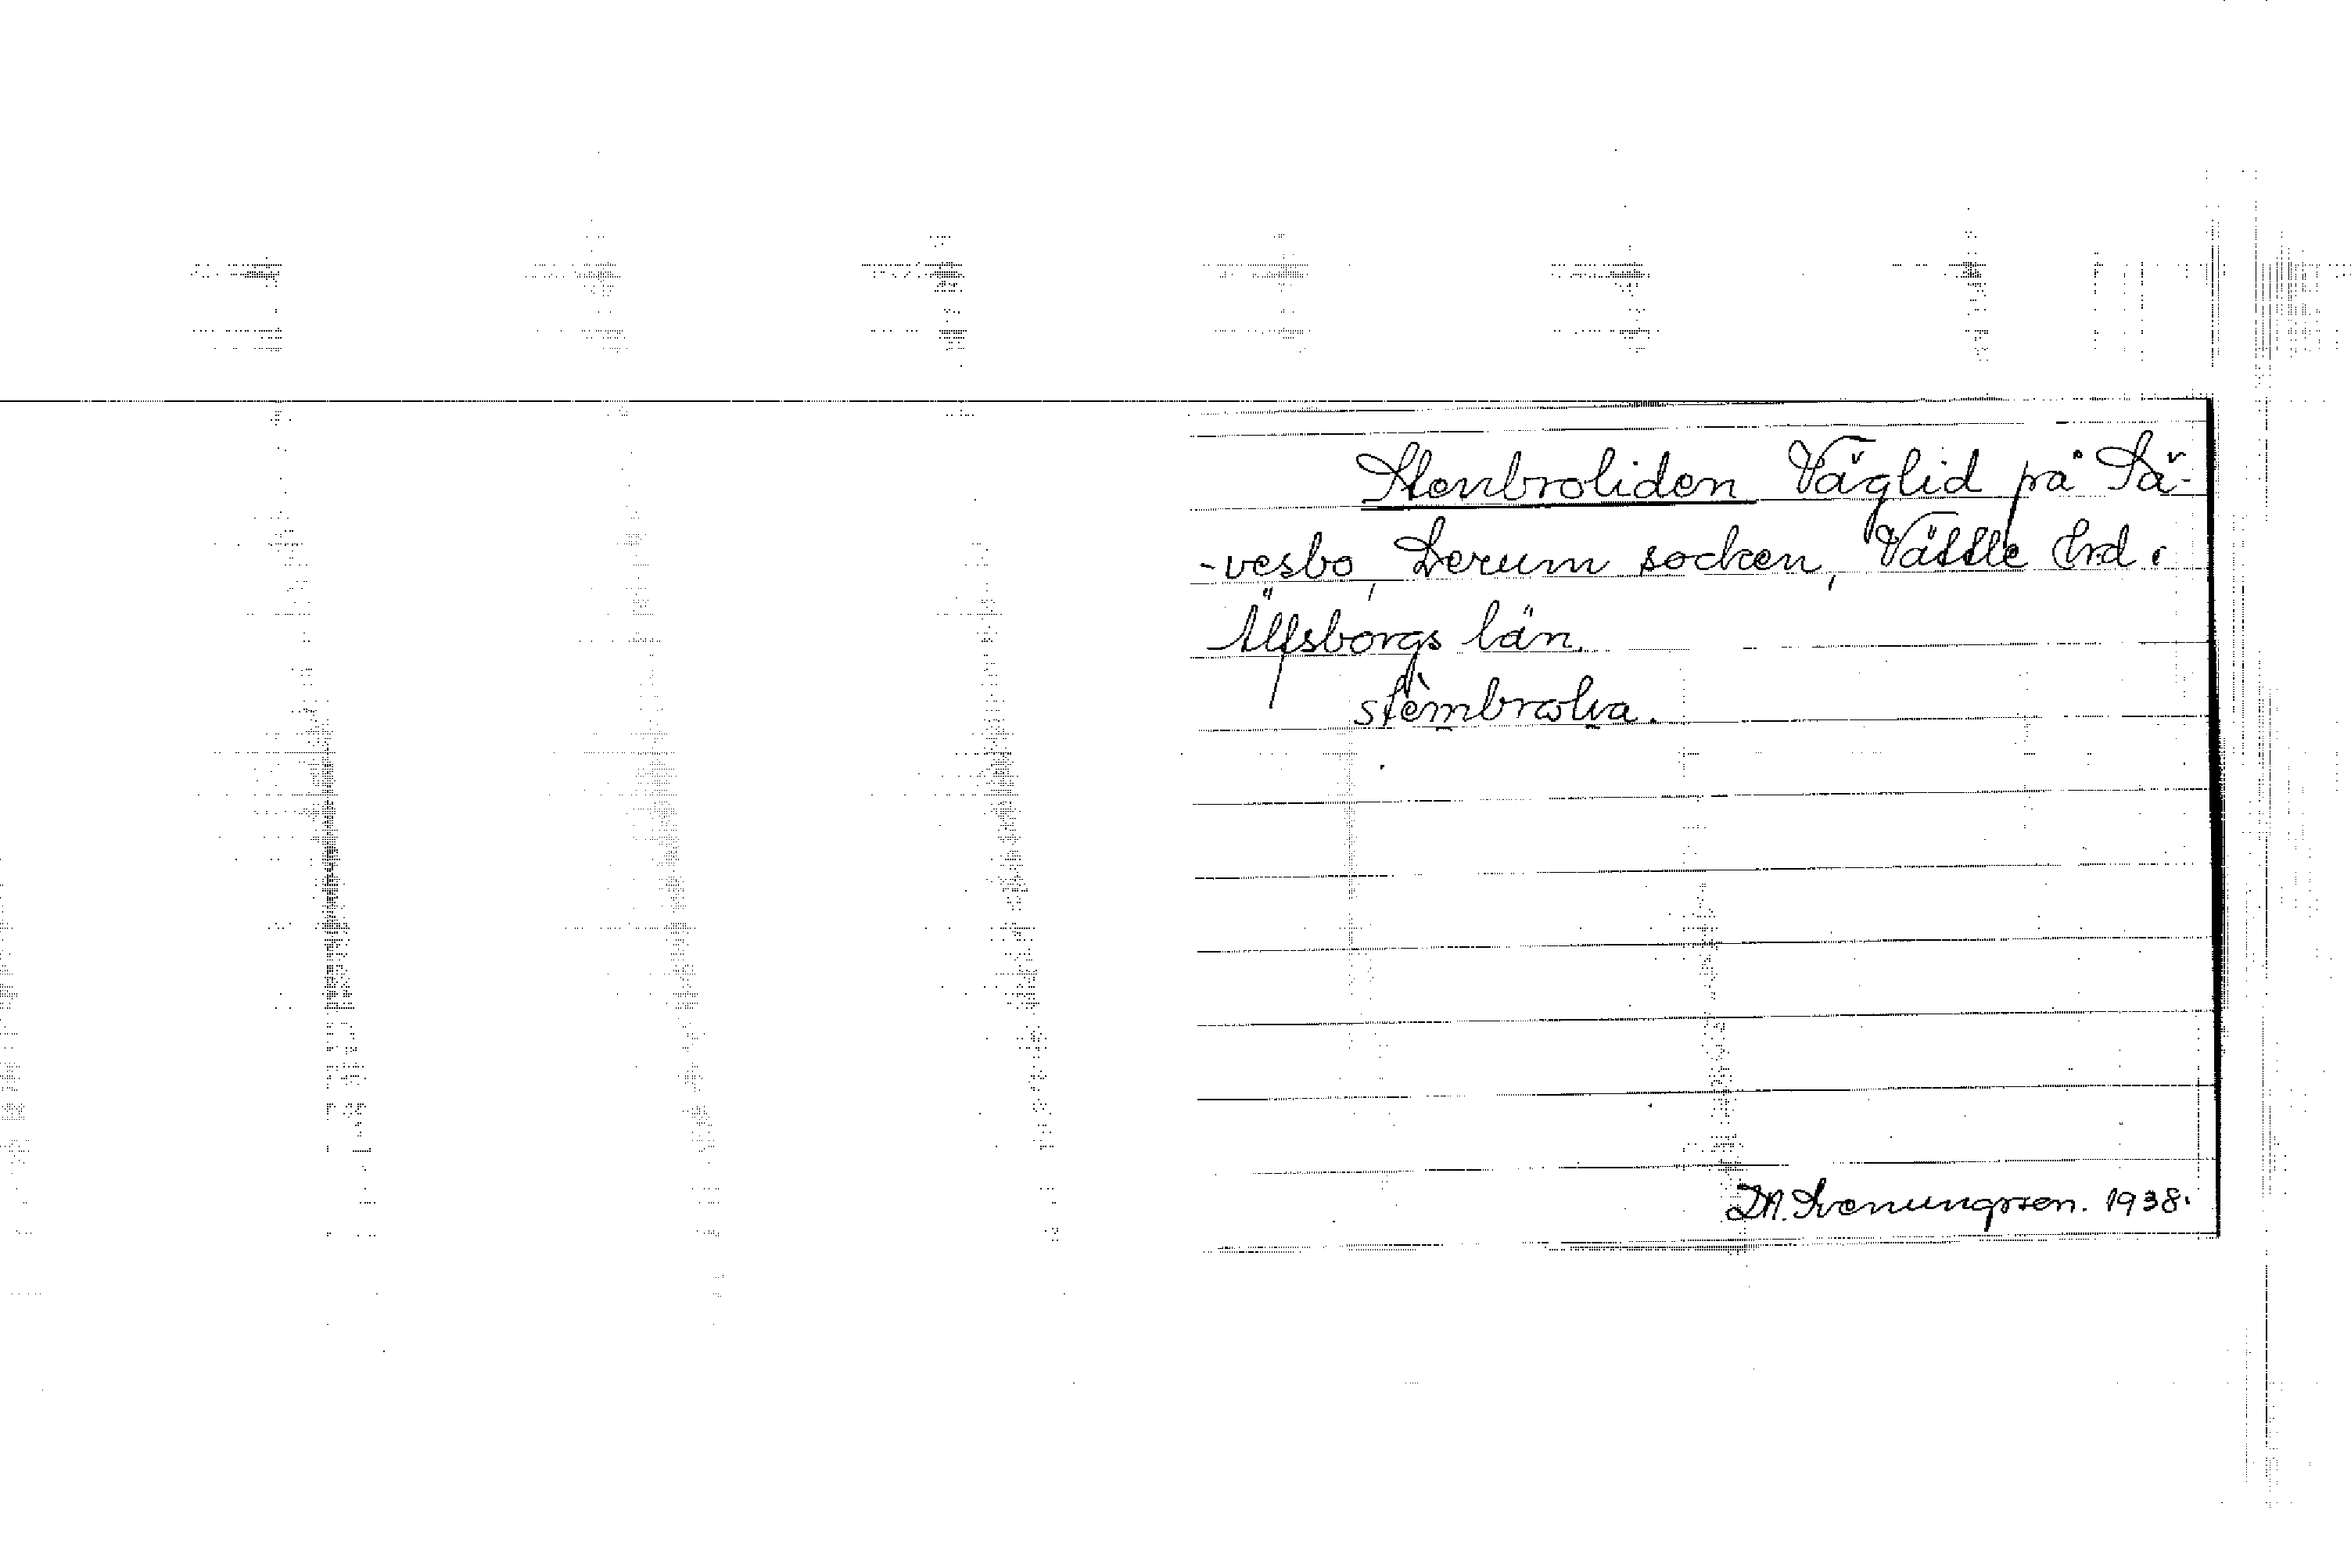 Stenbroliden Väglid på Sä-
-vesbo, Lerum socken, Vättle hrd.
Älfsborgs län.
stèmbrolia.
D.A. Svenungsson. 1938.